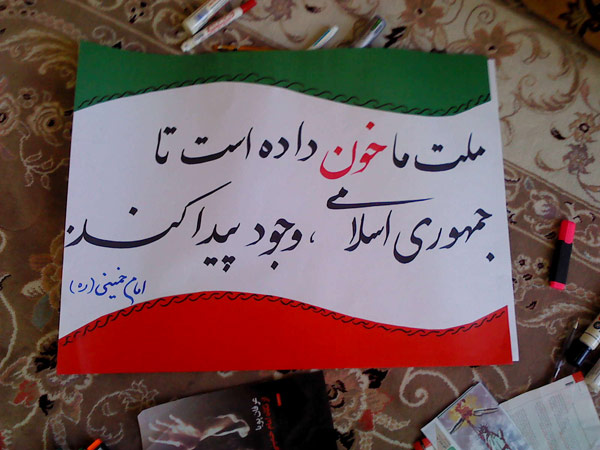 ملت ما خون داده است تا
جمهوری اسلامی ، وجود پیدا کند.
امام خمینی (ره)
عرفان پویا